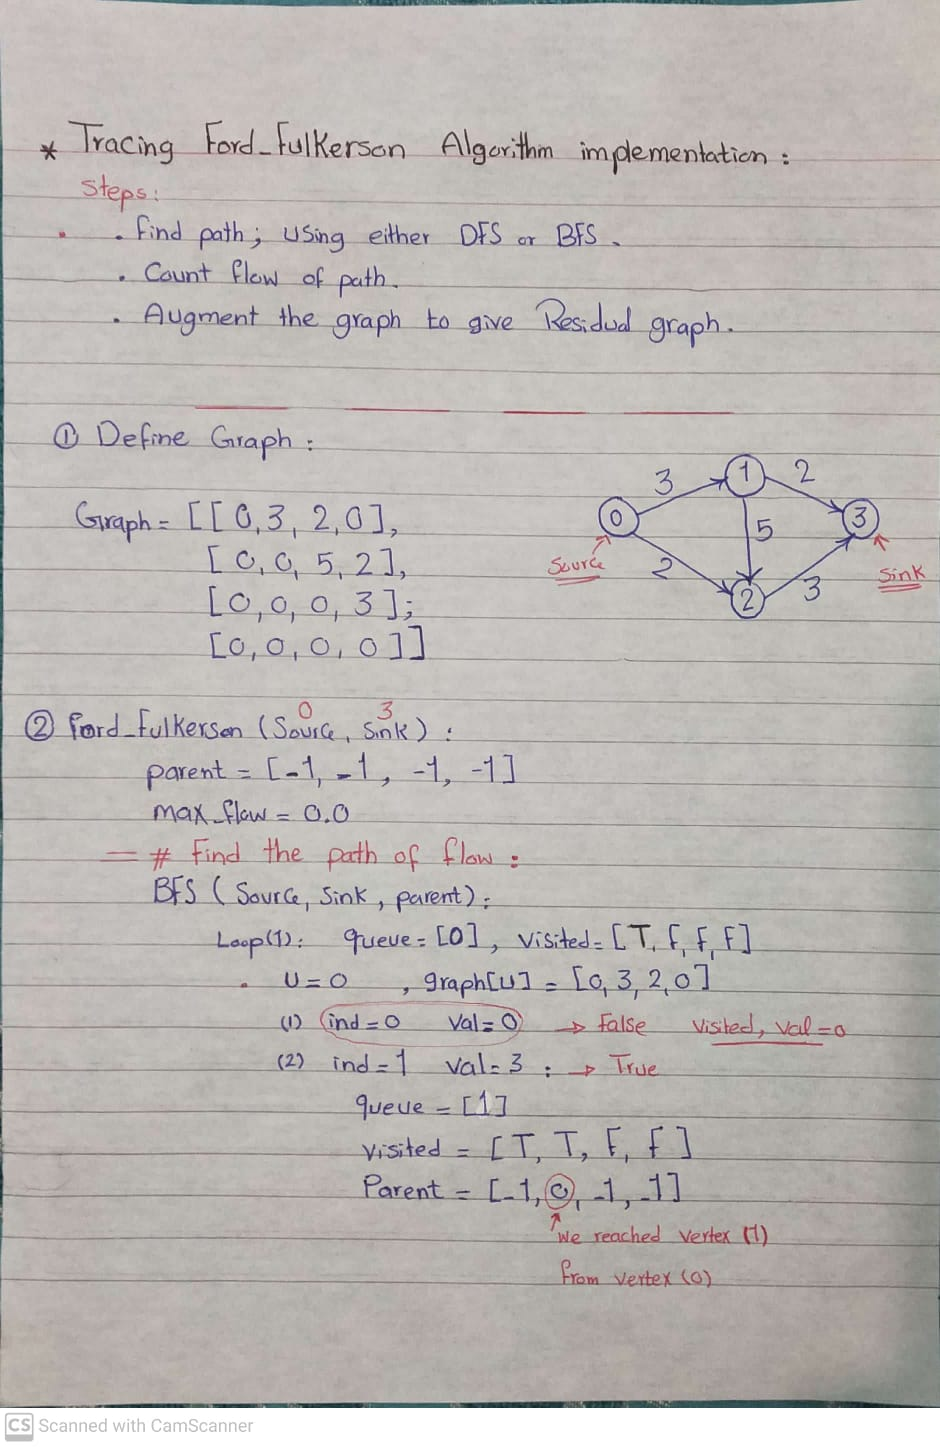 * Tracing Ford_Fulkerson Algorithm implementation :
Steps:
. Find path; using either DFS or BFS.
. Count flow of path.
. Augment the graph to give Residual graph.
① Define Graph :
Graph = [[0,3,2,0],
[0,0,5,2],
[0,0,0,3];
[0,0,0,0]]
3 1 2
0 5 3
Source 2 2 3 Sink
0 3
② Ford_Fulkerson (Source, Sink) :
parent = [-1, -1, -1, -1]
max_flow = 0.0
= # Find the path of flow :
BFS ( Source, Sink, parent) :
Loop(1): queue = [0], visited = [T, F, F, F]
. U = 0 , graph[U] = [0, 3, 2, 0]
(1) ind = 0 Val = 0 → False Visited, val = 0
(2) ind = 1 val = 3 : → True
queue = [1]
visited = [T, T, F, F]
Parent = [-1, 0, -1, -1]
we reached vertex (1)
from vertex (0)
CS Scanned with CamScanner